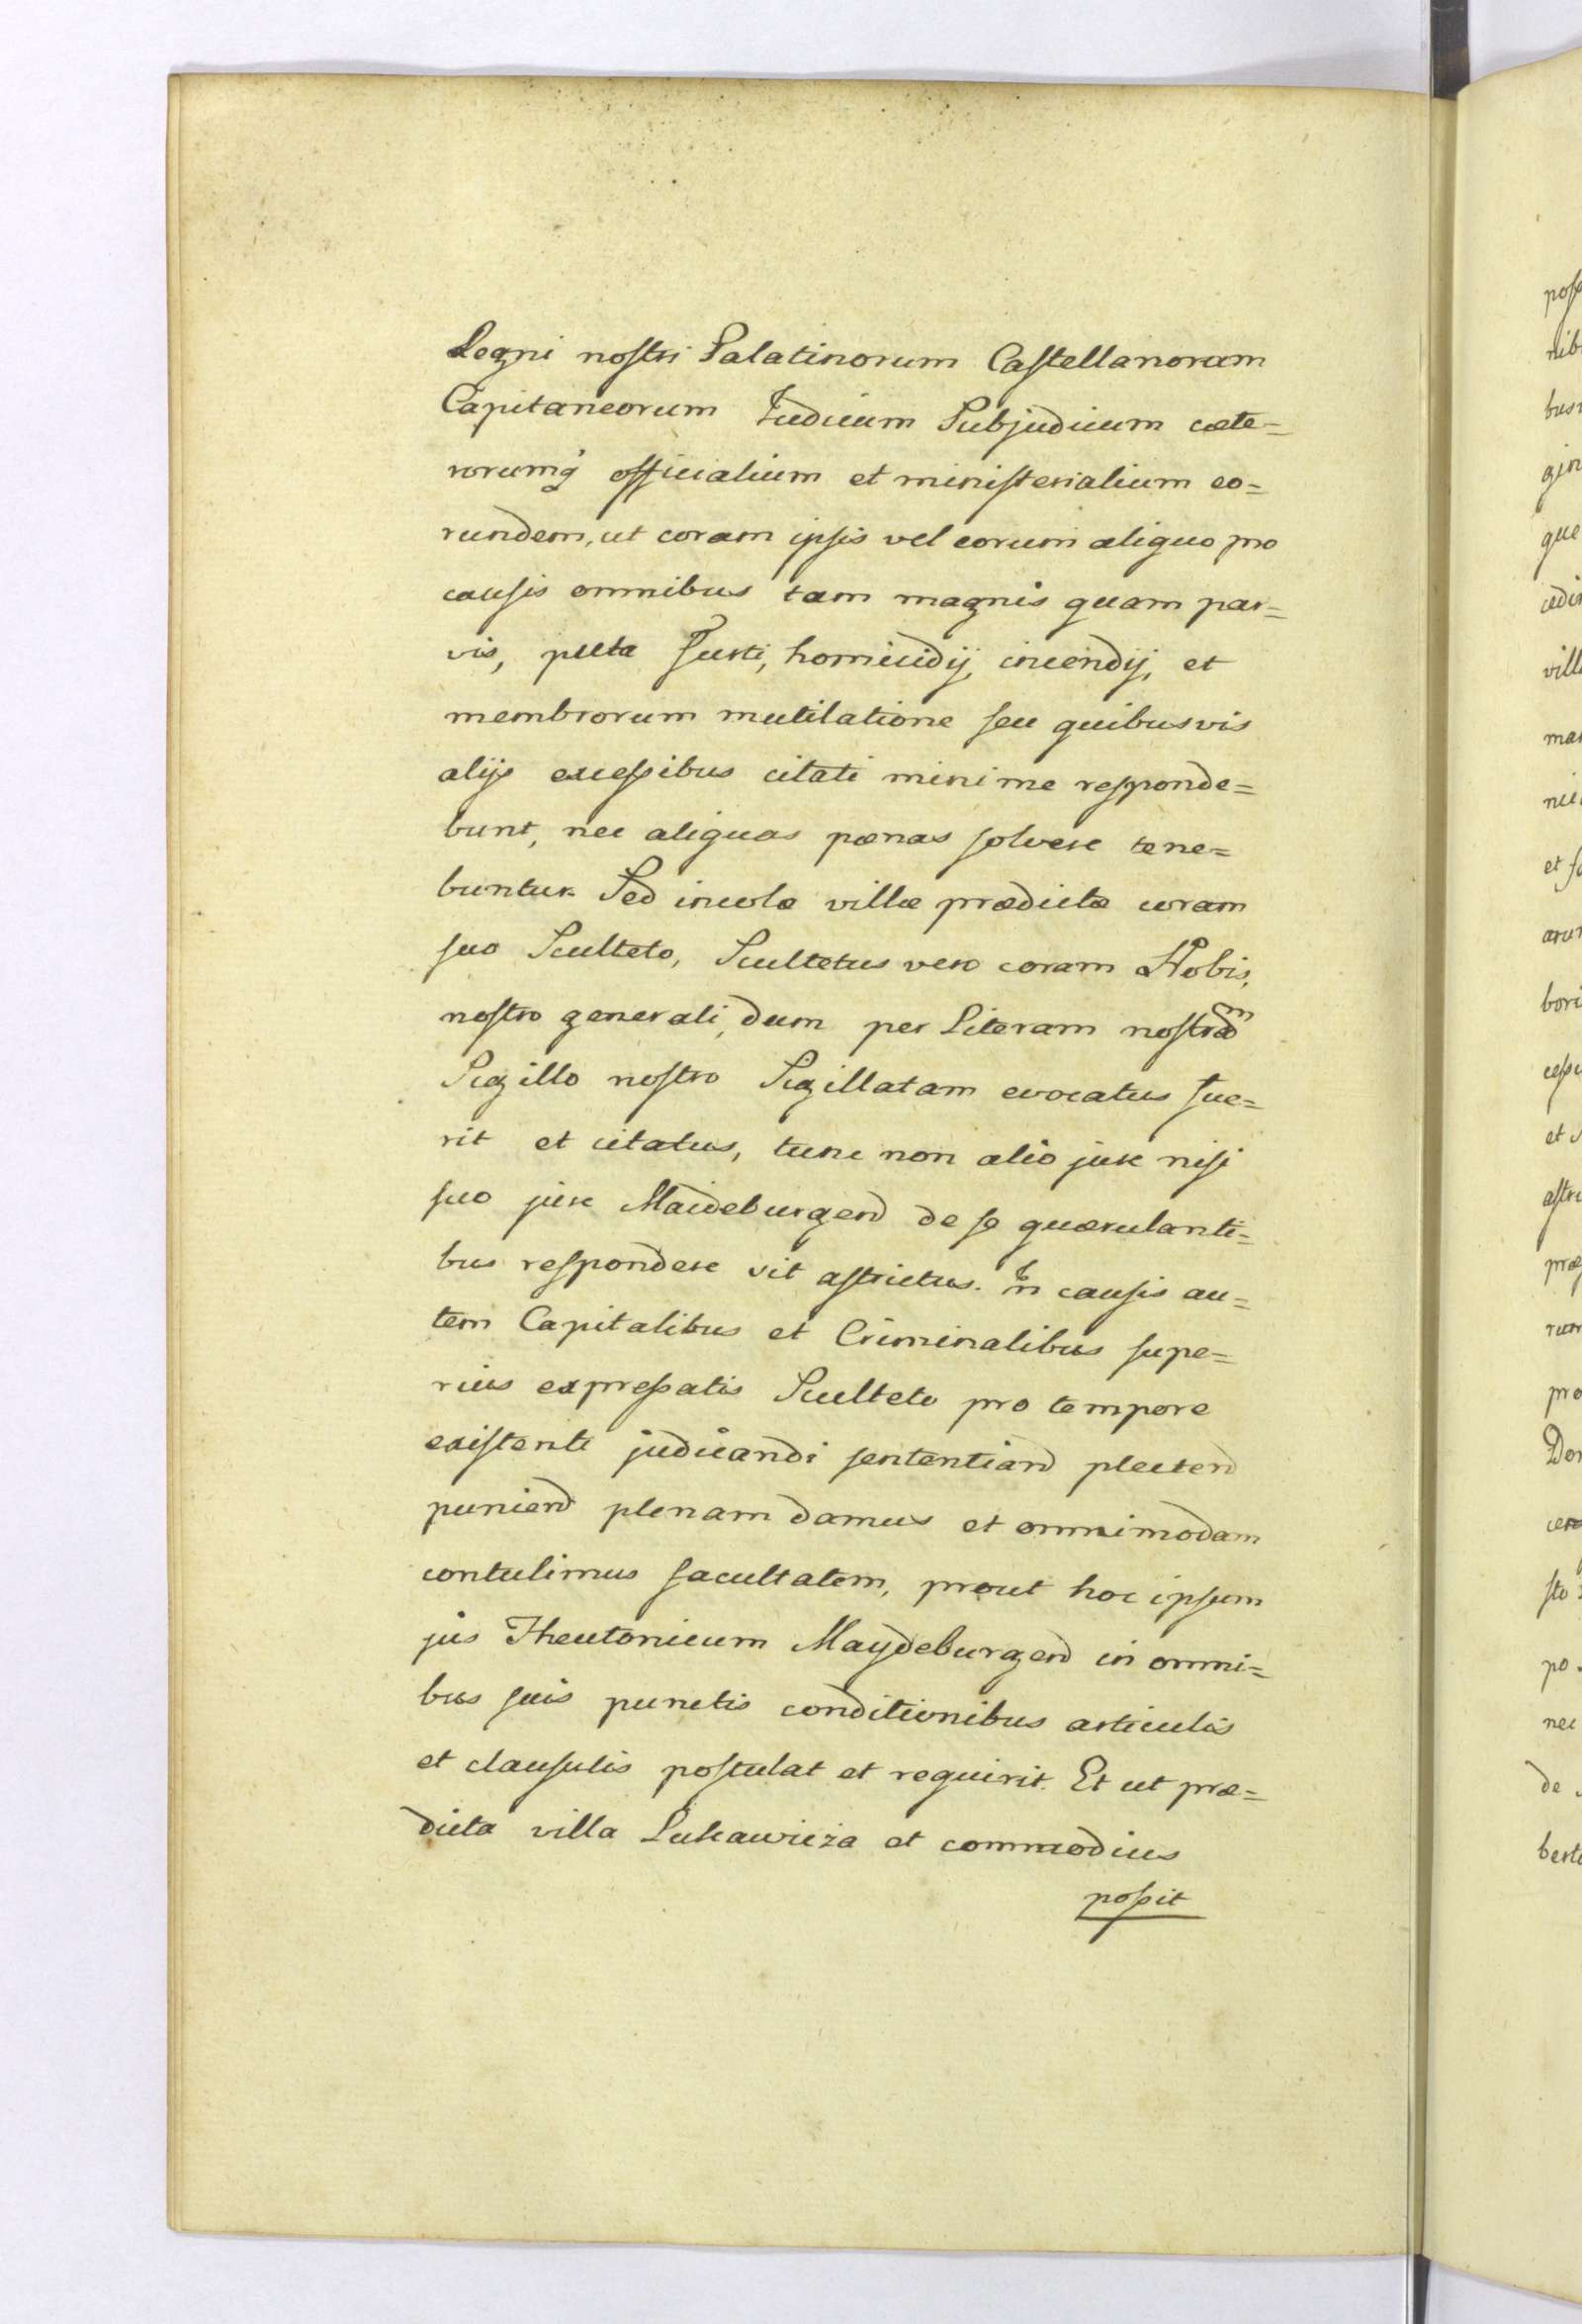 Regni nostri Palatinorum Castellanorum
Capitaneorum Iudicum Subjudicum cæte=
rorumq́ officialium et ministerialium eo=
rundem, ut coram ipsis vel eorum aliquo pro
causis omnibus tam magnis quam par=
vis, puta furti, homicidij, incendij, et
membrorum mutilatione seu quibusvis
alijs excessibus citati minime responde=
bunt, nec aliquas pœnas solvere tene=
buntur. Sed incolæ villæ prædictæ coram
suo Sculteto, Scultetus vero coram Nobis,
nostro generali, dum per Literam nostram
Sigillo nostro Sigillatam evocatus fue=
rit et citatus, tunc non alio jure nisi
suo jure Maideburgen de se quærulanti=
bus respondere sit astrictus. In causis au=
tem Capitalibus et Criminalibus supe=
rius expressatis Sculteto pro tempore
existente judicandi sententiand plecten
punien plenam damus et omnimodam
contulimus facultatem, prout hoc ipsum
jus Theutonicum Maydeburgen in omni=
bus suis punctis conditionibus articulis
et clausulis postulat et requirit. Et ut præ=
dicta villa Lukawicza et commodius
possit
poss
rib
busv
que
cedi
vill
et
bori
et
astri
præ
pro
Don
sto
po
nec
de